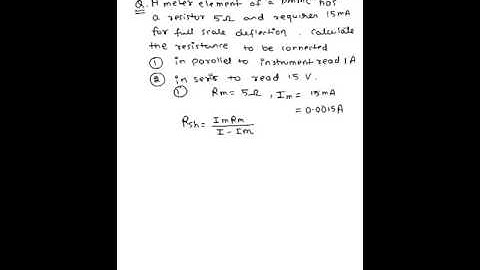 Q. A meter element of a pmmc has
a resistor 5Ω and requires 15mA
for full scale deflection. Calculate
the resistance to be connected
① in parallel to instrument read 1A
② in seris to read 15 V.
① Rm = 5Ω , Im = 15mA
= 0.0015A
Rsh = ImRm / I - Im